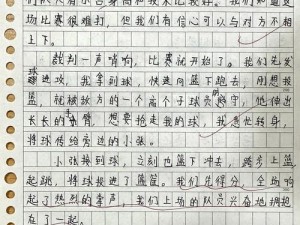 场比赛很难打，但我们有信心可以与对方不相
上下。
裁判一声哨响，比赛就开始了。我们先发
球进攻，我拿到球，快速向篮下跑去，刚想投
篮，就被敌方的一个高个子球员防守，他伸出
长长的手臂，想要抢走我的球，我急忙转身，
将球传给旁边的小张。
小张接到球，立刻向篮下冲去，跨步上篮
起跳，将球投进了篮筐。我们先得分，全场响
起了热烈的掌声，我们上场的队员兴奋地拥抱
在了一起。